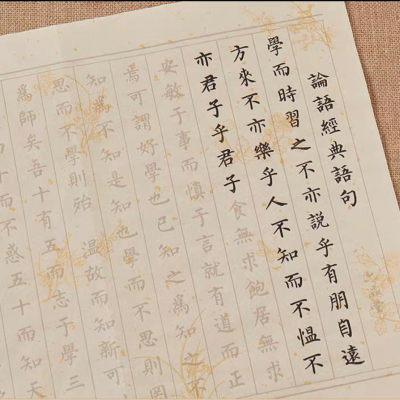 論語經典語句
學而時習之不亦説乎有朋自遠
方來不亦樂乎人不知而不愠不
亦君子乎君子食無求飽居無求
安敏于事而慎于言就有道而正
焉可謂好學也已知之為知之不
知為不知是知也學而不思則罔
思而不學則殆 温故而知新可
為師矣吾十有五而志于學三
而不惑五十而知天